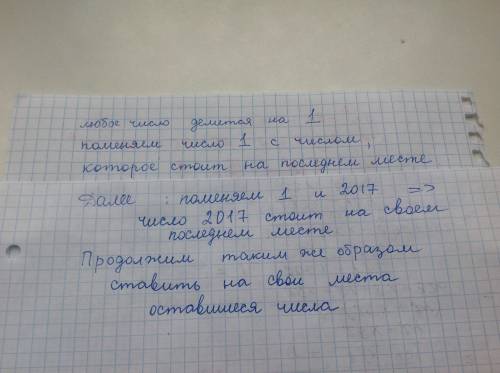 любое число делится на 1
поменяем число 1 с числом,
которое стоит на последнем месте
Далее : поменяем 1 и 2017 =>
число 2017 стоит на своем
последнем месте
Продолжим таким же образом
ставить на свои места
оставшиеся числа